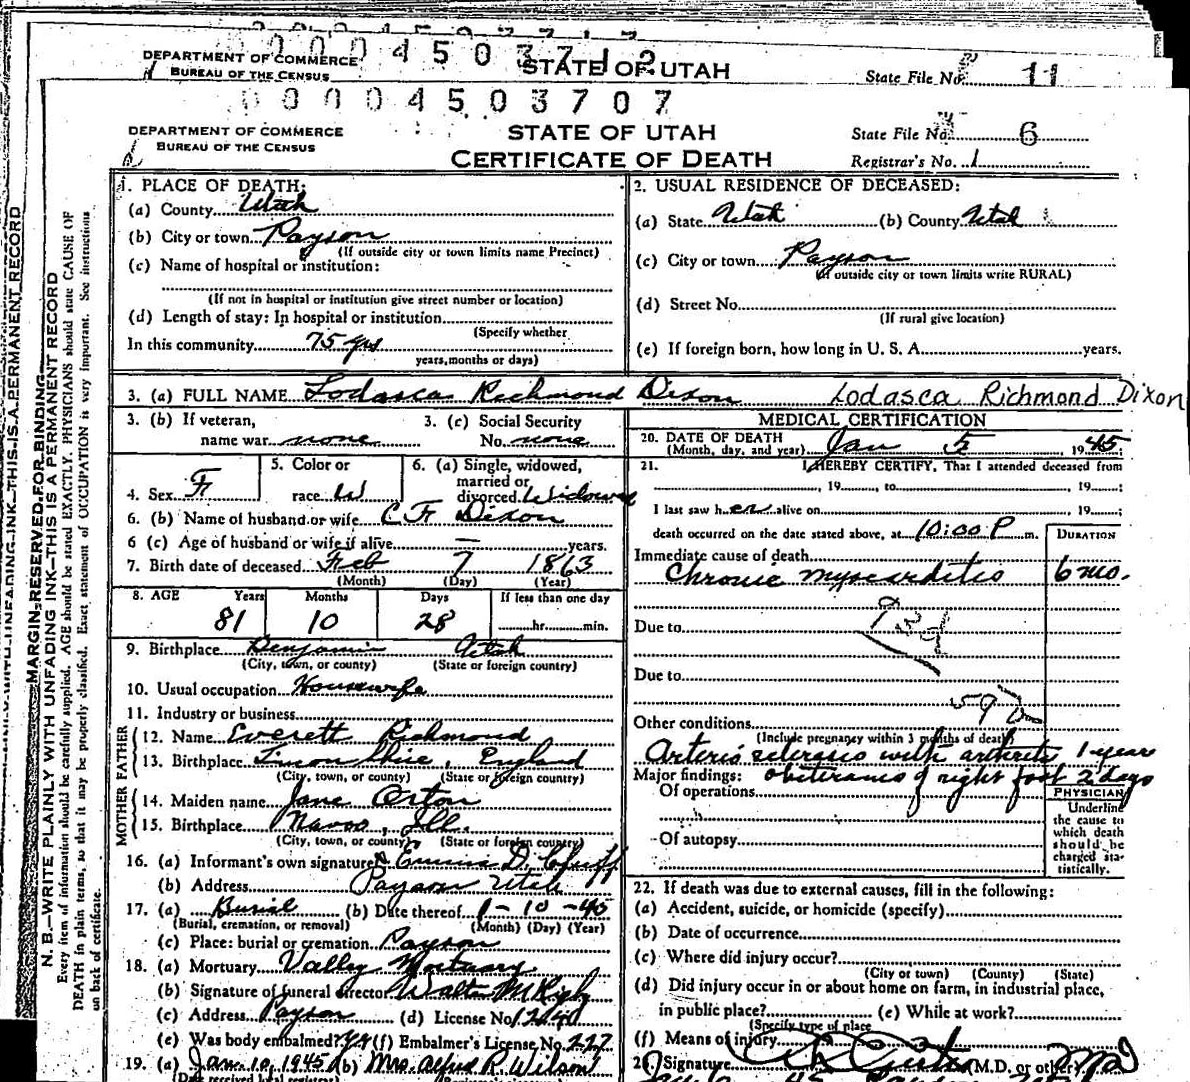 DEPARTMENT OF COMMERCE
BUREAU OF THE CENSUS
STATE OF UTAH
State File No. 11
0 0 0 0 4 5 0 3 7 0 7
DEPARTMENT OF COMMERCE
BUREAU OF THE CENSUS
STATE OF UTAH
CERTIFICATE OF DEATH
State File No. 6
Registrar's No. 1
MARGIN RESERVED FOR BINDING
N. B.—WRITE PLAINLY WITH UNFADING INK—THIS IS A PERMANENT RECORD
Every item of information should be carefully supplied. AGE should be stated EXACTLY. PHYSICIANS should state CAUSE OF
DEATH in plain terms, so that it may be properly classified. Exact statement of OCCUPATION is very important. See instructions
on back of certificate.
1. PLACE OF DEATH:
(a) County Utah
(b) City or town Payson
(If outside city or town limits name Precinct)
(c) Name of hospital or institution:
(If not in hospital or institution give street number or location)
(d) Length of stay: In hospital or institution
(Specify whether
In this community 75 yrs
years, months or days)
2. USUAL RESIDENCE OF DECEASED:
(a) State Utah (b) County Utah
(c) City or town Payson
(If outside city or town limits write RURAL)
(d) Street No.
(If rural give location)
(e) If foreign born, how long in U. S. A. years.
3. (a) FULL NAME Lodasca Richmond Dixon Lodasca Richmond Dixon
3. (b) If veteran, name war none
3. (c) Social Security No. none
4. Sex F
5. Color or race W
6. (a) Single, widowed, married or divorced Widowed
6. (b) Name of husband or wife C F Dixon
6 (c) Age of husband or wife if alive — years.
7. Birth date of deceased Feb 7 1863
(Month) (Day) (Year)
8. AGE Years Months Days If less than one day
81 10 28 hr. min.
9. Birthplace Benjamin Utah
(City, town, or county) (State or foreign country)
10. Usual occupation Housewife
11. Industry or business
FATHER
12. Name Everett Richmond
13. Birthplace England
(City, town, or county) (State or foreign country)
MOTHER
14. Maiden name Jane Orton
15. Birthplace Navoo, Ill.
(City, town, or county) (State or foreign country)
16. (a) Informant's own signature Emma D. Cluff
(b) Address Payson Utah
17. (a) Burial (b) Date thereof 1-10-45
(Burial, cremation, or removal) (Month) (Day) (Year)
(c) Place: burial or cremation Payson
18. (a) Mortuary Valley Mortuary
(b) Signature of funeral director Walter M Rigby
(c) Address Payson (d) License No.
(e) Was body embalmed? (f) Embalmer's License No. 227
19. (a) Jan. 10, 1945 (b) Mrs. Alfred R. Wilson
MEDICAL CERTIFICATION
20. DATE OF DEATH Jan 5 1945
(Month, day, and year)
21. I HEREBY CERTIFY, That I attended deceased from
, 19 , to , 19 ;
I last saw her alive on , 19 ;
death occurred on the date stated above, at 10:00 P m.
DURATION
Immediate cause of death
Chronic myocarditis 6 mo.
Due to
Due to
Other conditions
(Include pregnancy within 3 months of death)
Arterio sclerosis with arthritis 1 years
Major findings: obliterans of right foot 2 days
Of operations
Of autopsy
PHYSICIAN
Underline
the cause to
which death
should be
charged sta-
tistically.
22. If death was due to external causes, fill in the following:
(a) Accident, suicide, or homicide (specify)
(b) Date of occurrence
(c) Where did injury occur?
(City or town) (County) (State)
(d) Did injury occur in or about home on farm, in industrial place,
in public place? (e) While at work?
(Specify type of place
(f) Means of injury
Signature (M.D. or other) MD